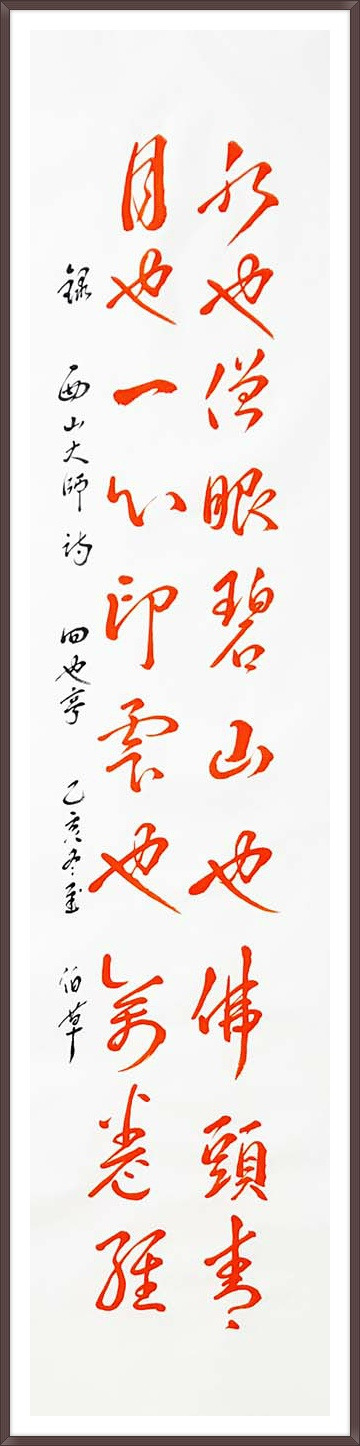 水也僧眼碧山也佛頭青
月也一心印雲也萬卷經
錄 西山大師詩 四也亭 己亥冬至 伯草